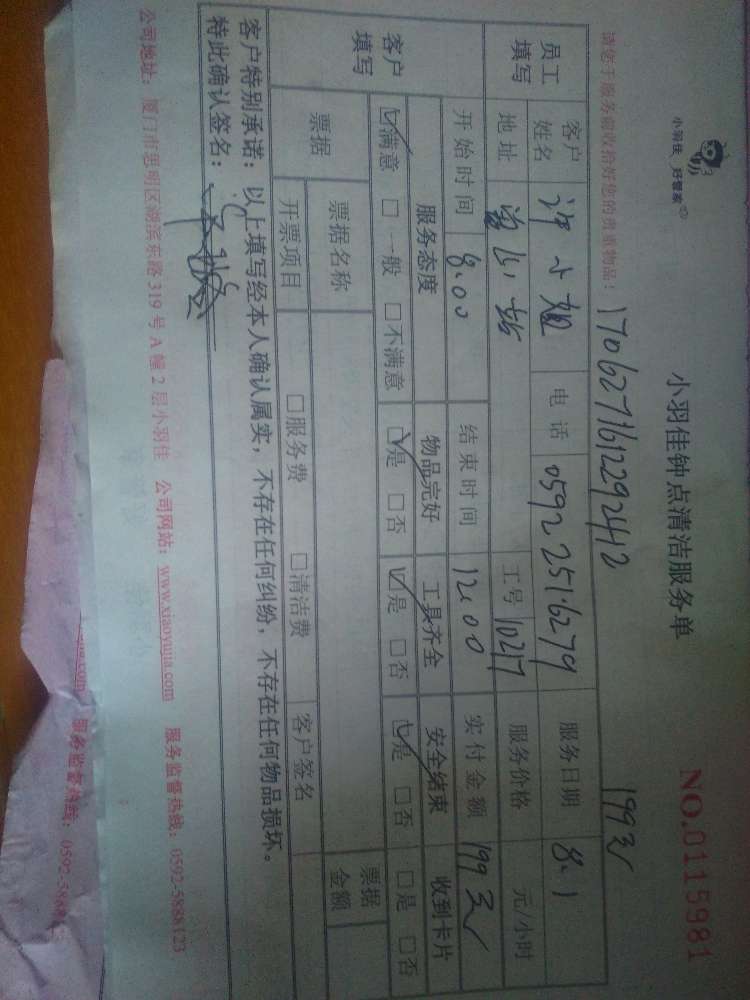 小羽佳 好管家
小羽佳钟点清洁服务单
NO.0115981
请您于服务前收拾好您的贵重物品！
1706271612292412
199元
员工填写 客户姓名 许小姐 电话 0592 2516279 服务日期 8.1
地址 工号 10217 服务价格 元/小时
客户填写 开始时间 8:00 结束时间 12:00 实付金额 199元
服务态度 物品完好 工具齐全 安全结束 收到卡片
☑满意 □一般 □不满意 ☑是 □否 ☑是 □否 ☑是 □否 □是 □否
票据 票据名称 票据金额
开票项目 □服务费 □清洁费 客户签名
客户特别承诺：以上填写经本人确认属实，不存在任何纠纷，不存在任何物品损坏。
特此确认签名：
公司地址：厦门市思明区湖滨东路319号A幢2层小羽佳 公司网站：www.xiaoyujia.com 服务监督热线：0592-5888123
jia.com 服务监督热线：0592-5888